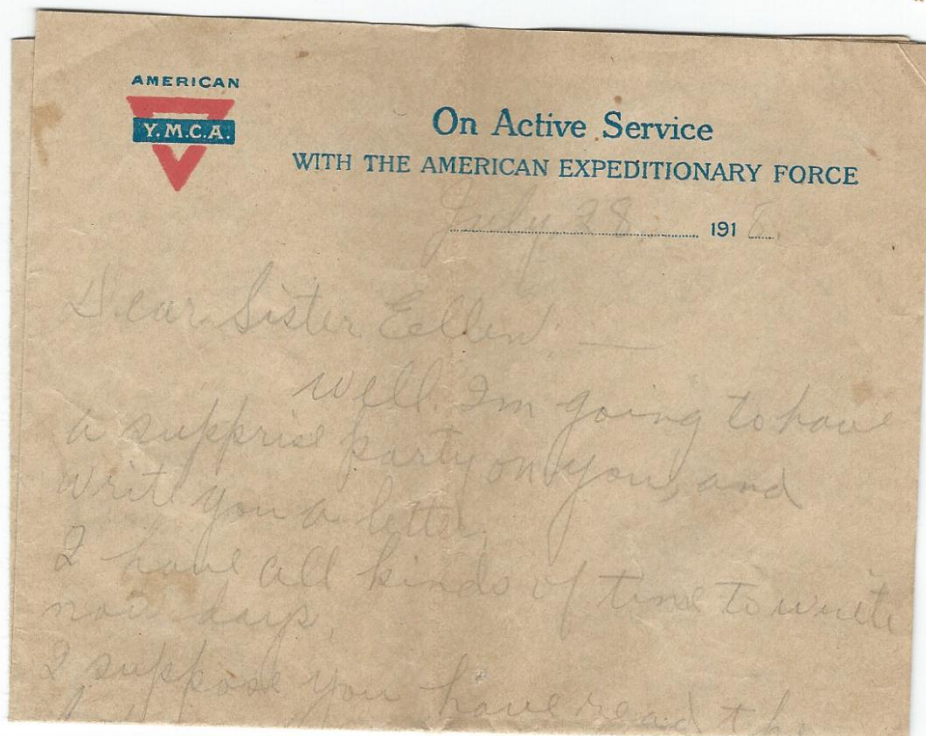 AMERICAN
Y.M.C.A.
On Active Service
WITH THE AMERICAN EXPEDITIONARY FORCE
July 28, 1918.
Dear Sister Eellen —
Well I'm going to have
a supprise party on you, and
write you a letter.
I have all kinds of time to write
now days.
I suppose you have read the